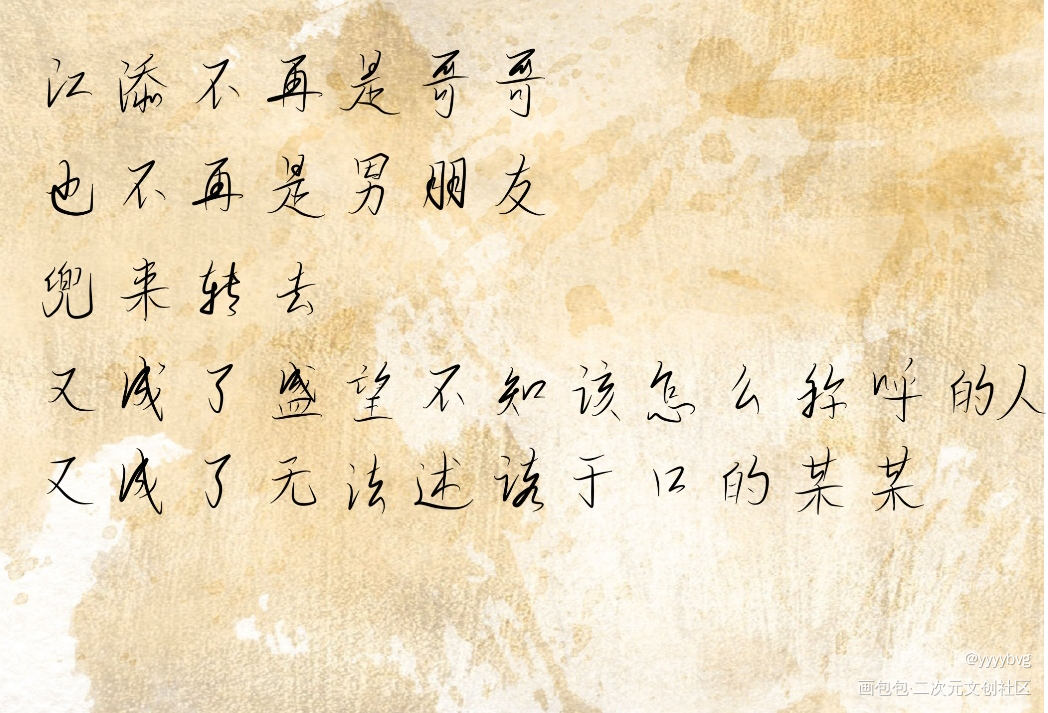 江添不再是哥哥
也不再是男朋友
兜来转去
又成了盛望不知该怎么称呼的人
又成了无法述该于口的某某
@yyyybvg
画包包·二次元文创社区